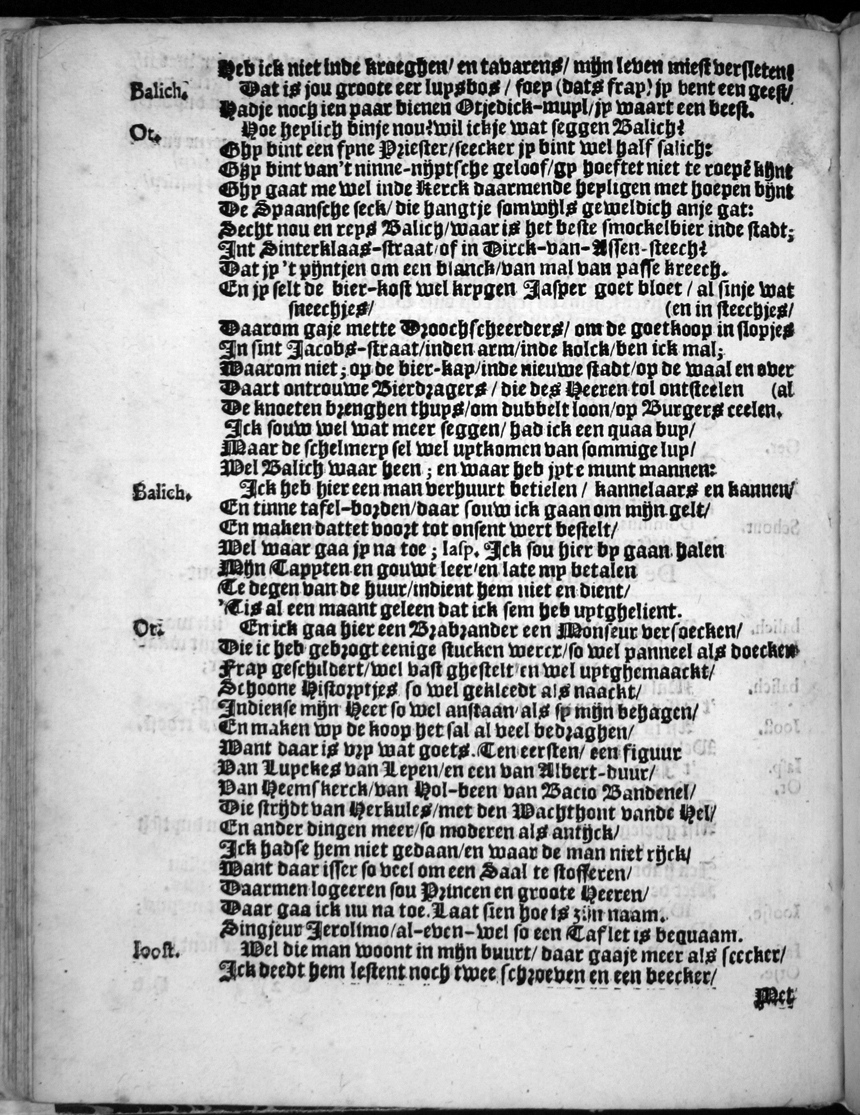 Heb ick niet inde kroeghen/ en tavarens/ mijn leven miest versleten?
Balich. Dat is jou groote eer lupsbos / foep (dats frap) jy bent een geest/
Hadje noch ien paar bienen Otjedick-muyl/jp waart een beest.
Ot. Hoe heylich binje nou? wil ickje wat seggen Balich?
Ghy bint een fyne Priester/seecker jy bint wel half salich:
Ghy bint van't ninne-nijptsche geloof/gy hoeftet niet te roepē kijnt
Ghy gaat me wel inde Kerck daarmende heyligen met hoepen bijnt
De Spaansche seck/ die hangtje somwijls geweldich anje gat:
Secht nou en reys Balich/waar is het beste smockelbier inde stadt;
Int Sinterklaas-straat/of in Dirck-van-Assen-steech?
Dat jy 't pijntjen om een blanck/van mal van passe kreech.
En jy selt de bier-kost wel krygen Jasper goet bloet / al sinje wat
sneechjes/ (en in steechjes/
Daarom gaje mette Droochscheerders/ om de goetkoop in slopjes
In sint Jacobs-straat/inden arm/inde kolck/ben ick mal;
Waarom niet; op de bier-kap/inde nieuwe stadt/op de waal en over
Daart ontrouwe Bierdragers / die des Heeren tol ontsteelen (al
De knoeten brenghen thuys/om dubbelt loon/op Burgers ceelen.
Ick souw wel wat meer seggen/ had ick een quaa buy/
Maar de schelmery sel wel uytkomen van sommige luy/
Wel Balich waar heen; en waar heb jyt e munt mannen:
Balich. Ick heb hier een man verhuurt betielen / kannelaars en kannen/
En tinne tafel-borden/daar souw ick gaan om mijn gelt/
En maken dattet voort tot onsent wert bestelt/
Wel waar gaa jy na toe; Iasp. Ick sou hier by gaan halen
Mijn Tappyten en gouwt leer/en late my betalen
Te degen van de huur/indient hem niet en dient/
'Tis al een maant geleen dat ick sem heb uytghelient.
Ot. En ick gaa hier een Brabrander een Monseur versoecken/
Die ic heb gebrogt eenige stucken wercx/so wel panneel als doecken
Frap geschildert/wel vast ghestelt en wel uytghemaackt/
Schoone Historytjes so wel gekleedt als naackt/
Indiense mijn Heer so wel anstaan als sy mijn behagen/
En maken wy de koop het sal al veel bedraghen/
Want daar is vry wat goets. Ten eersten/ een figuur
Van Luyckes van Leyen/en een van Albert-duur/
Van Heemskerck/van Hol-been van Bacio Bandenel/
Die strijdt van Herkules/met den Wachthont vande Hel/
En ander dingen meer/so moderen als antijck/
Ick hadse hem niet gedaan/en waar de man niet rijck/
Want daar isser so veel om een Saal te stofferen/
Daarmen logeeren sou Princen en groote Heeren/
Daar gaa ick nu na toe. Laat sien hoe is zijn naam.
Singjeur Jerolimo/al-even-wel so een Taflet is bequaam.
Ioost. Wel die man woont in mijn buurt/ daar gaaje meer als seecker/
Ick deedt hem lestent noch twee schroeven en een beecker/
Met